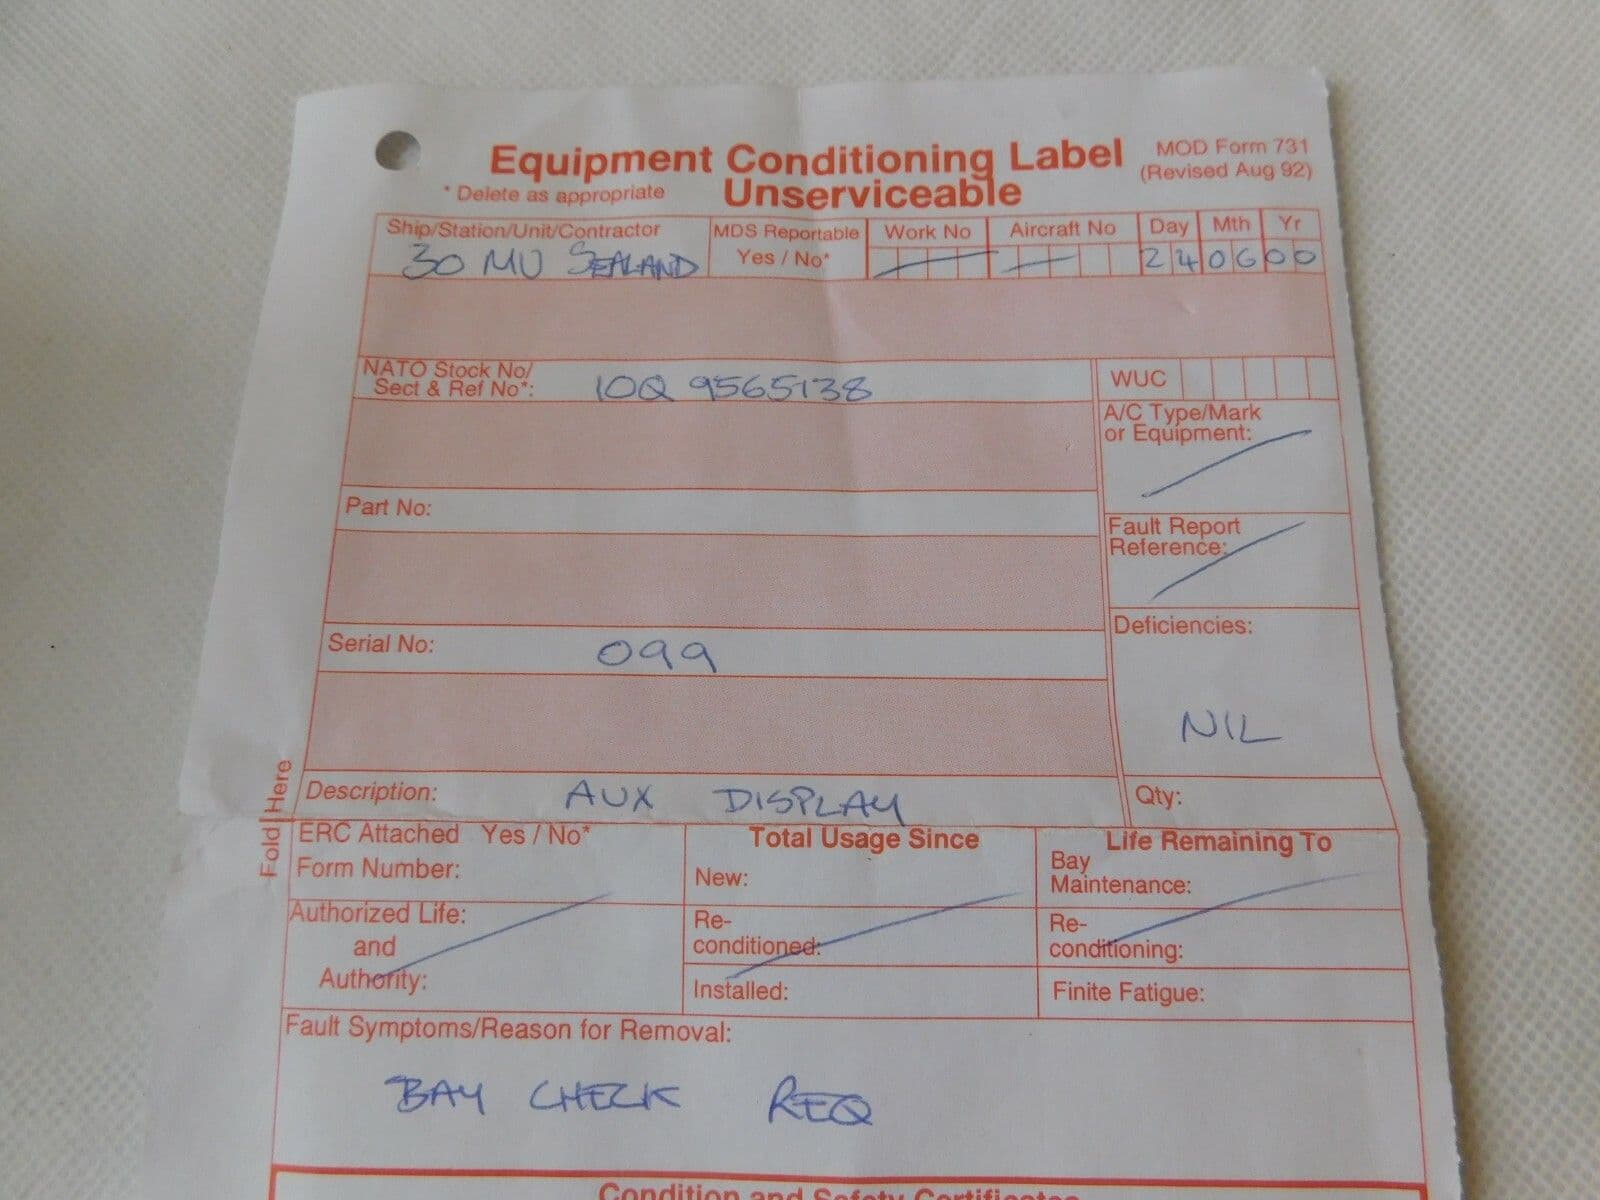 Equipment Conditioning Label
Unserviceable
MOD Form 731
(Revised Aug 92)
* Delete as appropriate
Ship/Station/Unit/Contractor
30 MU SEALAND
MDS Reportable
Yes / No*
Work No
Aircraft No
Day Mth Yr
24 06 00
NATO Stock No/
Sect & Ref No*: 10Q 9565138
WUC
A/C Type/Mark
or Equipment:
Part No:
Fault Report
Reference:
Serial No: 099
Deficiencies:
NIL
Description: AUX DISPLAY
Qty:
Fold Here
ERC Attached Yes / No*
Form Number:
Authorized Life:
and
Authority:
Total Usage Since
New:
Re-
conditioned:
Installed:
Life Remaining To
Bay
Maintenance:
Re-
conditioning:
Finite Fatigue:
Fault Symptoms/Reason for Removal:
BAY CHECK REQ
Condition and Safety Certificates